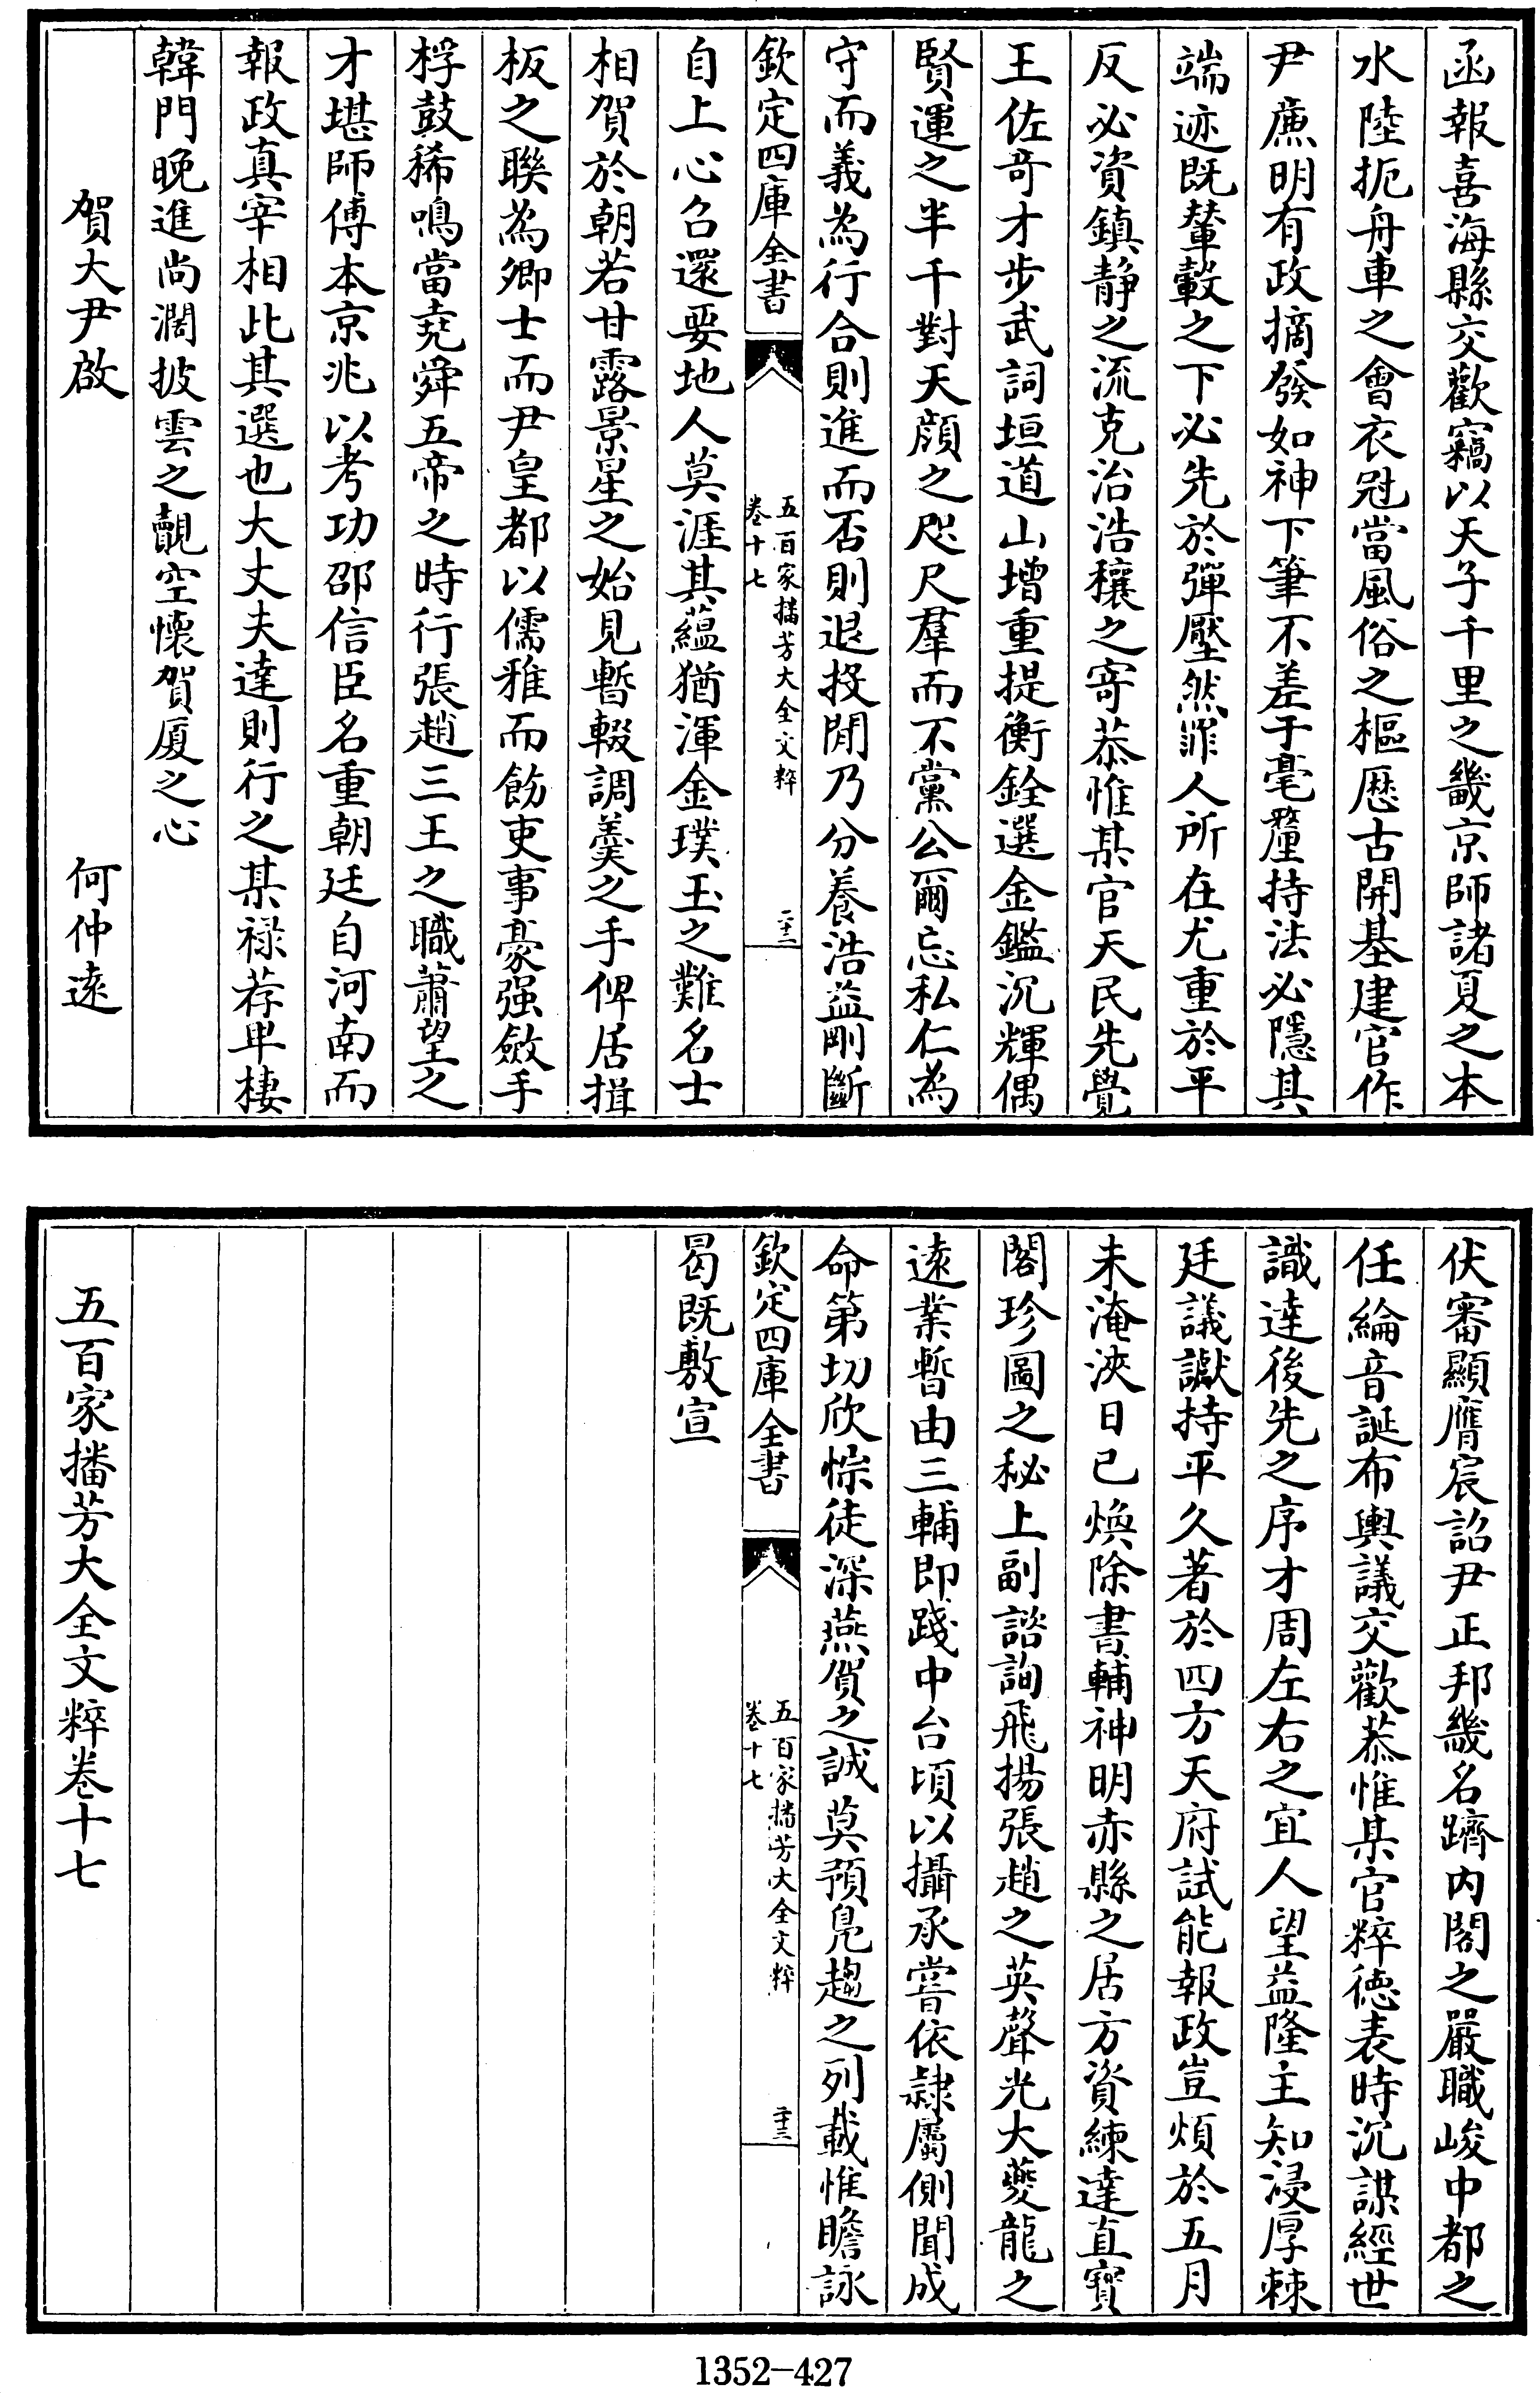 函報喜海縣交歡竊以天子千里之畿京師諸夏之本
水陸扼舟車之會衣冠當風俗之樞厯古開基建官作
尹廉明有政摘發如神下筆不差于毫釐持法必隱其
端迹既輦轂之下必先於彈壓然罪人所在尤重於平
反必資鎮静之流克治浩穰之寄恭惟某官天民先覺
王佐奇才步武詞垣道山增重提衡銓選金鑑沉輝偶
賢運之半千對天顔之咫尺羣而不黨公爾忘私仁為
守而義為行合則進而否則退投閒乃分養浩益剛斷
欽定四庫全書
五百家播芳大全文粹
卷十七
二十二
自上心召還要地人莫涯其藴猶渾金璞玉之難名士
相賀於朝若甘露景星之始見暫輟調羹之手俾居揖
板之聯為卿士而尹皇都以儒雅而飭吏事豪强斂手
桴鼓稀鳴當堯舜五帝之時行張趙三王之職蕭望之
才堪師傅本京兆以考功邵信臣名重朝廷自河南而
報政真宰相此其選也大丈夫達則行之某禄荐卑棲
韓門晚進尚濶披雲之覿空懷賀厦之心
賀大尹啟　何仲逺
伏審顯膺宸詔尹正邦畿名躋内閣之嚴職峻中都之
任綸音誕布輿議交歡恭惟某官粹徳表時沉謀經世
識逹後先之序才周左右之宜人望益隆主知浸厚棘
廷議讞持平久著於四方天府試能報政豈煩於五月
未淹浹日已煥除書輔神明赤縣之居方資練達直寳
閣珍圖之秘上副諮詢飛揚張趙之英聲光大夔龍之
逺業暫由三輔即踐中台頃以攝承嘗依隷屬側聞成
命第切欣悰徒深燕賀之誠莫預鳬趨之列載惟瞻詠
欽定四庫全書
五百家播芳大全文粹
卷十七
二十三
曷既敷宣
五百家播芳大全文粹卷十七
1352-427